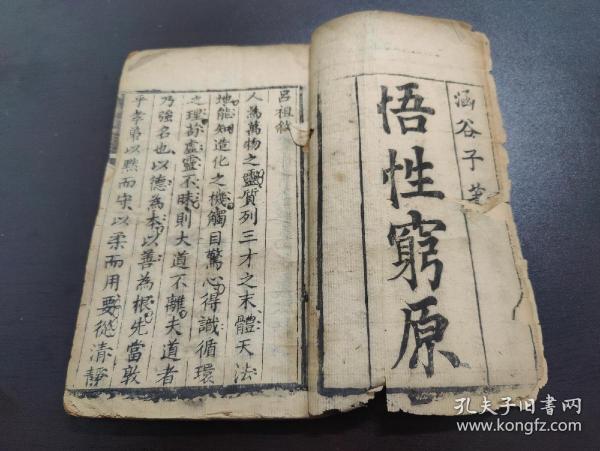 涵谷子著
悟性窮原
呂祖敘
人為萬物之靈質列三才之末體天法
地能知造化之機觸目驚心得識循環
之理苟虛靈不昧則大道不離夫道者
乃強名也以德為本以善為根先當敦
乎孝弟以默而守以柔而用要從清靜
孔夫子旧書网
www.kongfz.com